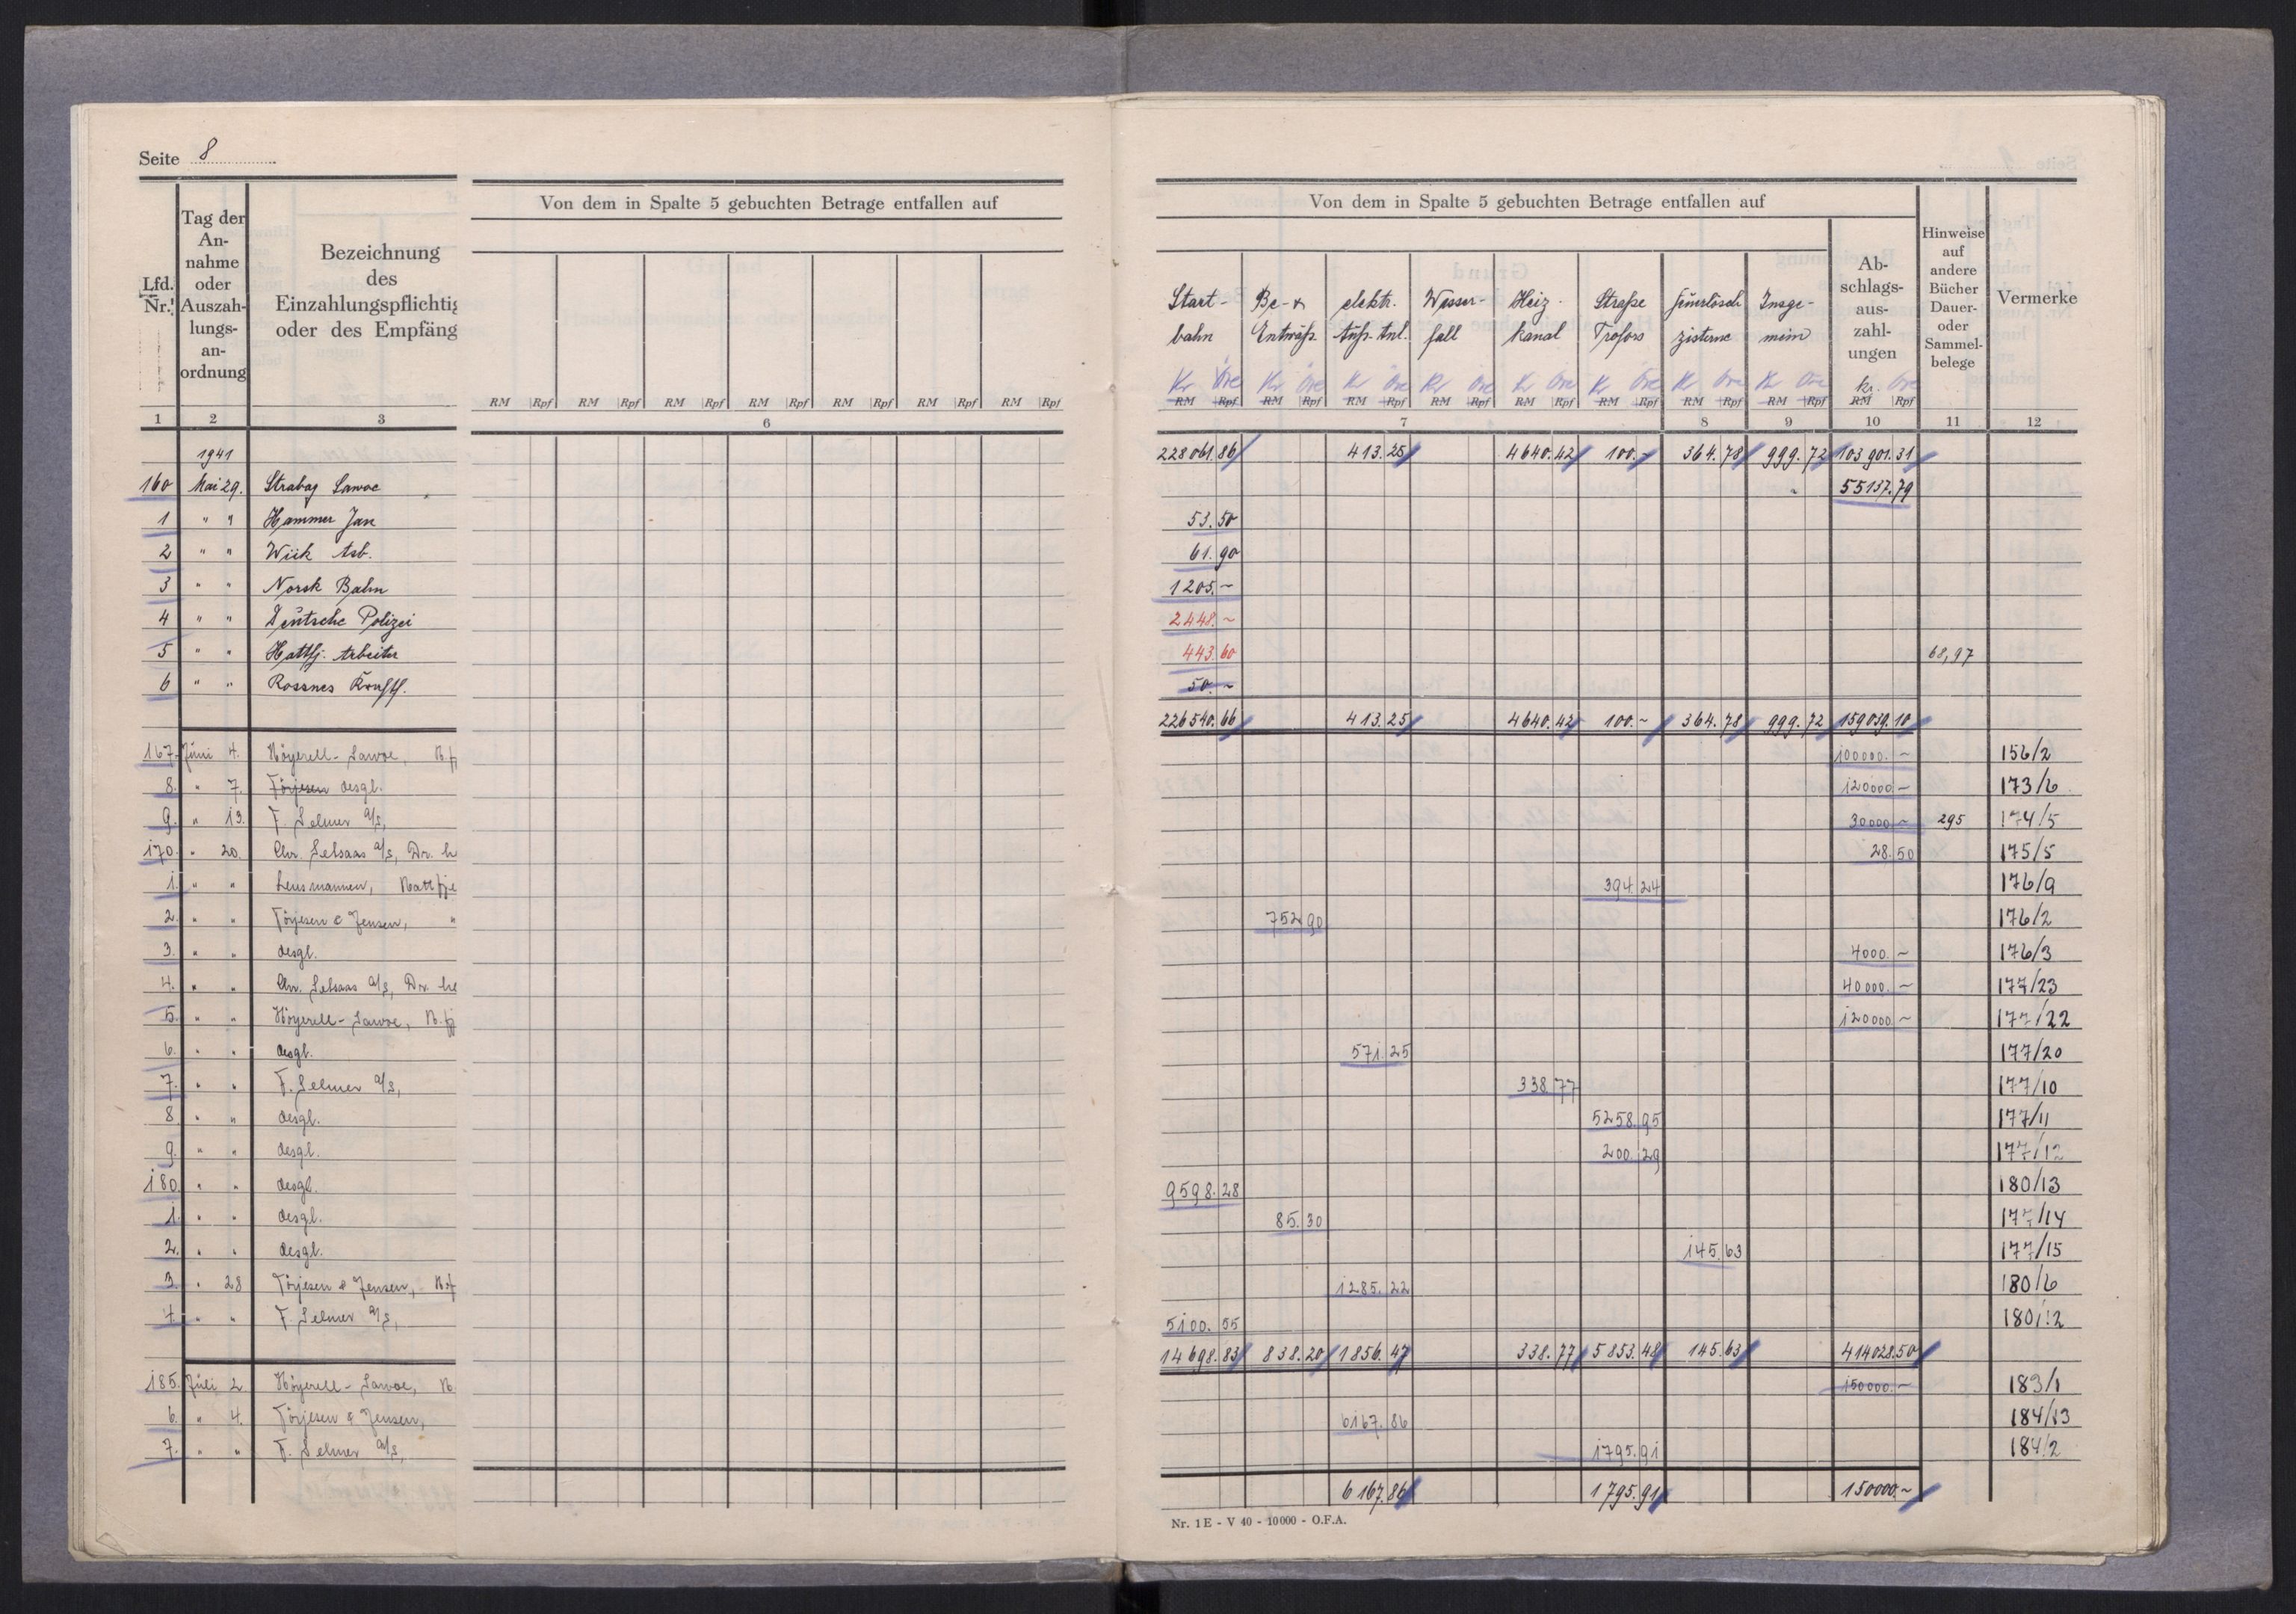 Seite 8
Von dem in Spalte 5 gebuchten Betrage entfallen auf
Von dem in Spalte 5 gebuchten Betrage entfallen auf
Lfd. Nr.
Tag der An-nahme oder Auszah-lungs-an-ordnung
Bezeichnung
des
Einzahlungspflichtig
oder des Empfäng
Start-bahn
Be- & Entwäss.
elektr. Anl.
Wasser-fall
Heiz-kanal
Straße Trofors
Feuerlösch zisterne
Insge-mein
Ab-schlags-aus-zahl-ungen
Hinweise auf andere Bücher Dauer- oder Sammel-belege
Vermerke
Kr Öre Kr Öre Kr Öre Kr Öre Kr Öre Kr Öre Kr Öre Kr Öre kr. Öre
RM Rpf RM Rpf RM Rpf RM Rpf RM Rpf RM Rpf RM Rpf
RM Rpf RM Rpf RM Rpf RM Rpf RM Rpf RM Rpf RM Rpf RM Rpf RM Rpf
1 2 3 6 7 8 9 10 11 12
1941 228061.86 413.25 4640.42 100.- 364.78 999.72 103901.31
160 Mai 29. Strabag Savoe 55137.79
1 " " Hammer Jan 53.50
2 " " Wiik Asb. 61.90
3 " " Norsk Bahn 1205.-
4 " " Deutsche Polizei 2448.-
5 " " Hattfj. Arbeiter 443.60 68,97
6 " " Rossnes 50.-
226540.66 413.25 4640.42 100.- 364.78 999.72 159039.10
167. Juni 4. Höyerell-Savoe, 100000.- 156/2
8. " 7. Törjesen desgl. 120000.- 173/6
9. " 13. F. Selmer a/s, 30000.- 295 174/5
170. " 20. Chr. Selsaas a/s, Dr. h 28.50 175/5
1. " " Lensmannen, Hattfje 394.24 176/9
2. " " Törjesen & Jensen, " 752.90 176/2
3. " " desgl. 4000.- 176/3
4. " " Chr. Selsaas a/s, Dr. he 40000.- 177/23
5. " " Höyerell-Savoe, H.fj 120000.- 177/22
6. " " desgl. 571.25 177/20
7. " " F. Selmer a/s, 338.77 177/10
8. " " desgl. 5258.95 177/11
9. " " desgl. 200.29 177/12
180. " " desgl. 9598.28 180/13
1. " " desgl. 85.30 177/14
2. " " desgl. 145.63 177/15
3. " 28 Törjesen & Jensen, 1285.22 180/6
4. " " F. Selmer a/s, 5100.55 180/12
14698.83 838.20 1856.47 338.77 5853.48 145.63 414028.50
185. Juli 2 Höyerell-Savoe, H. 150000.- 183/1
6. " 4. Törjesen & Jensen, 6167.86 184/13
7. " " F. Selmer a/s, 1795.91 184/2
6167.86 1795.91 150000.-
Nr. 1 E - V 40 - 10000 - O.F.A.